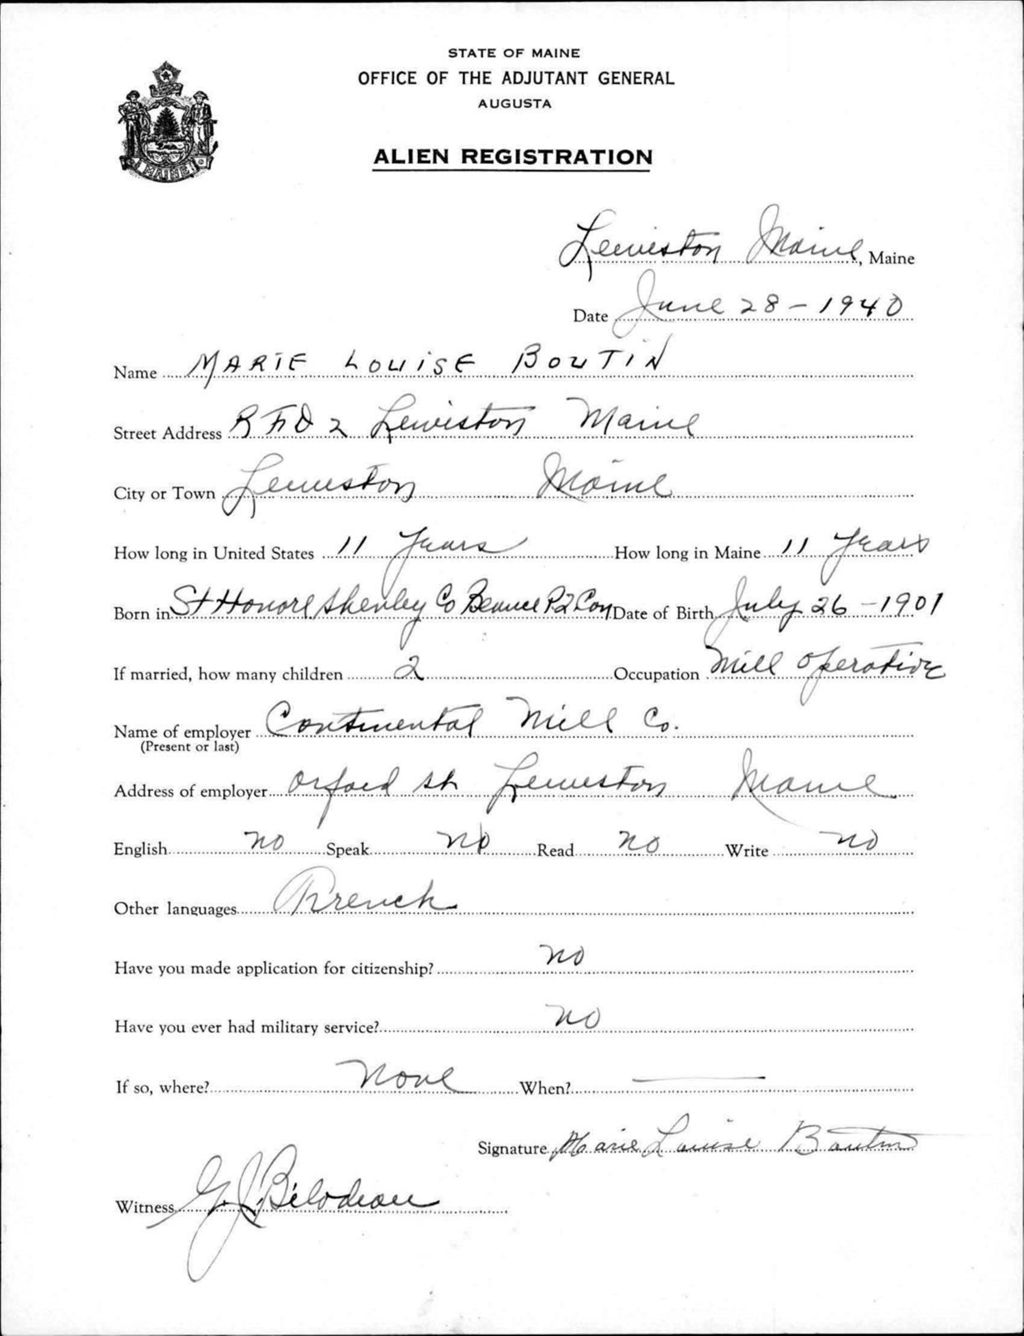 STATE OF MAINE
OFFICE OF THE ADJUTANT GENERAL
AUGUSTA
MAINE
ALIEN REGISTRATION
Lewiston Maine, Maine
Date June 28-1940
Name MARIE LOUISE BOUTIN
Street Address RFD 2 Lewiston Maine
City or Town Lewiston Maine
How long in United States 11 Years How long in Maine 11 Years
Born in St Honore Shenley Co Beauce P2 Can Date of Birth July 26-1901
If married, how many children 2 Occupation Mill operative
Name of employer Continental Mill Co.
(Present or last)
Address of employer Oxford St Lewiston Maine
English no Speak no Read no Write no
Other languages French
Have you made application for citizenship? no
Have you ever had military service? no
If so, where? None When? —
Signature Marie Louise Boutin
Witness G. J. Bilodeau